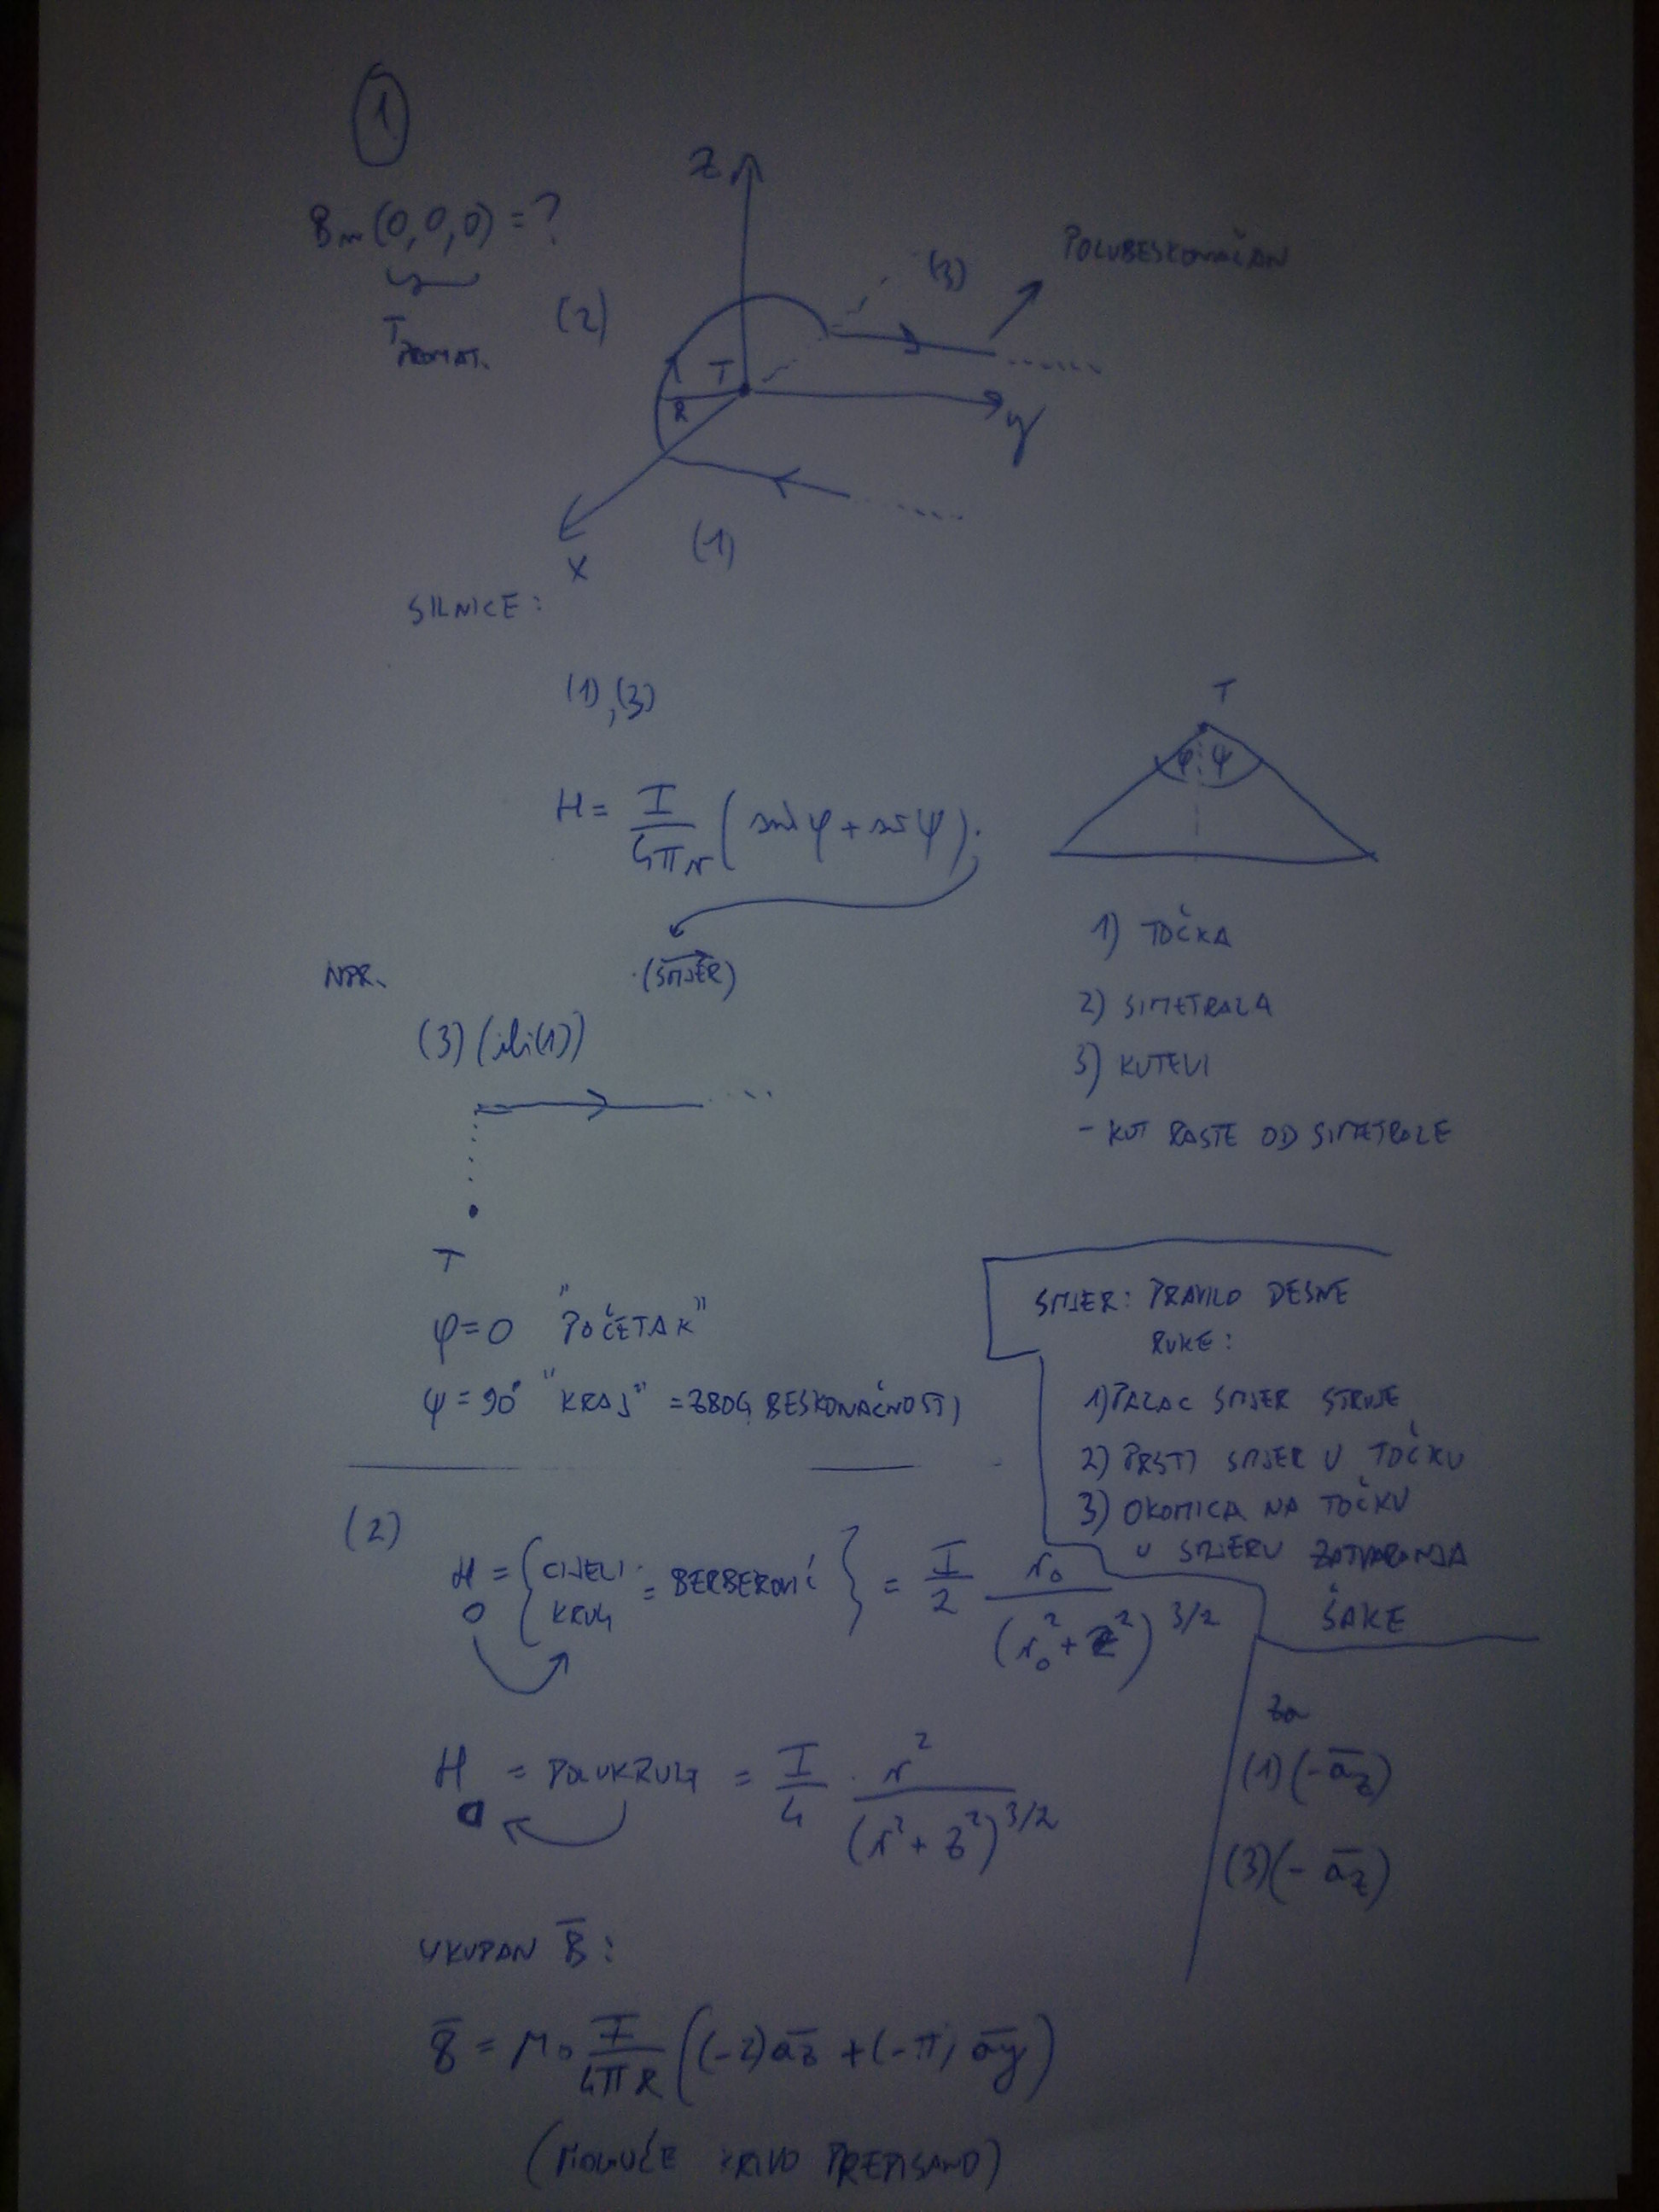 1
z
Bm(0,0,0) = ?
POLUBESKONAČAN
(3)
(2)
T
T
R
y
(1)
x
SILNICE:
(1),(3)
T
φ ψ
H = I/4πr (sin φ + sin ψ)·
·(SMJER)
1) TOČKA
NPR.
2) SIMETRALA
(3) (ili(1))
3) KUTEVI
- KUT RASTE OD SIMETRALE
T
φ = 0 "POČETAK"
ψ = 90° "KRAJ" = ZBOG BESKONAČNOSTI
SMJER: PRAVILO DESNE
RUKE:
1) PALAC SMJER STRUJE
2) PRSTI SMJER U TOČKU
3) OKOMICA NA TOČKU
U SMJERU ZATVARANJA
ŠAKE
(2)
H = { CIJELI KRUG = BERBEROVIĆ } = I/2 r₀/(r₀² + z²)^3/2
H = POLUKRUG = I/4 · r²/(r² + z²)^3/2
za
(1)(-a̅z)
(3)(-a̅z)
UKUPAN B̅:
B̅ = μ₀ I/4πR ((-2)a̅z + (-π) a̅y)
(MOGUĆE KRIVO PREPISANO)